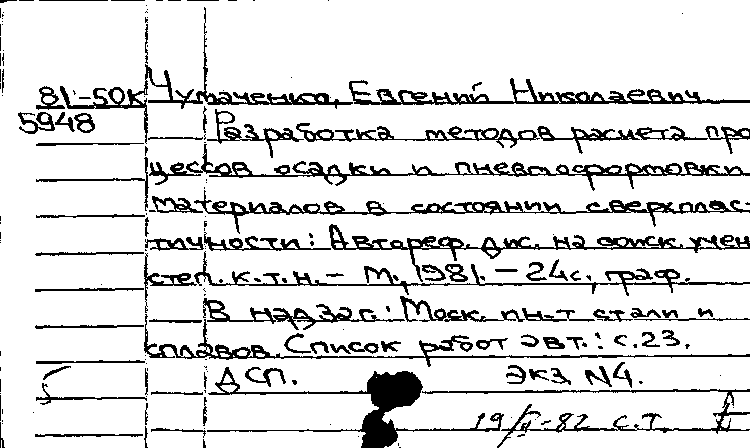 81-50К Чумаченко, Евгений Николаевич.
5948 Разработка методов расчета про
цессов осадки и пневмоформовки
материалов в состоянии сверхплас-
тичности: Автореф. дис. на соиск. учен
степ. к.т.н. - М., 1981. - 24с., граф.
В надзаг.: Моск. ин-т стали и
сплавов. Список работ авт.: с.23.
ДСП. экз. N4.
82 с.т.